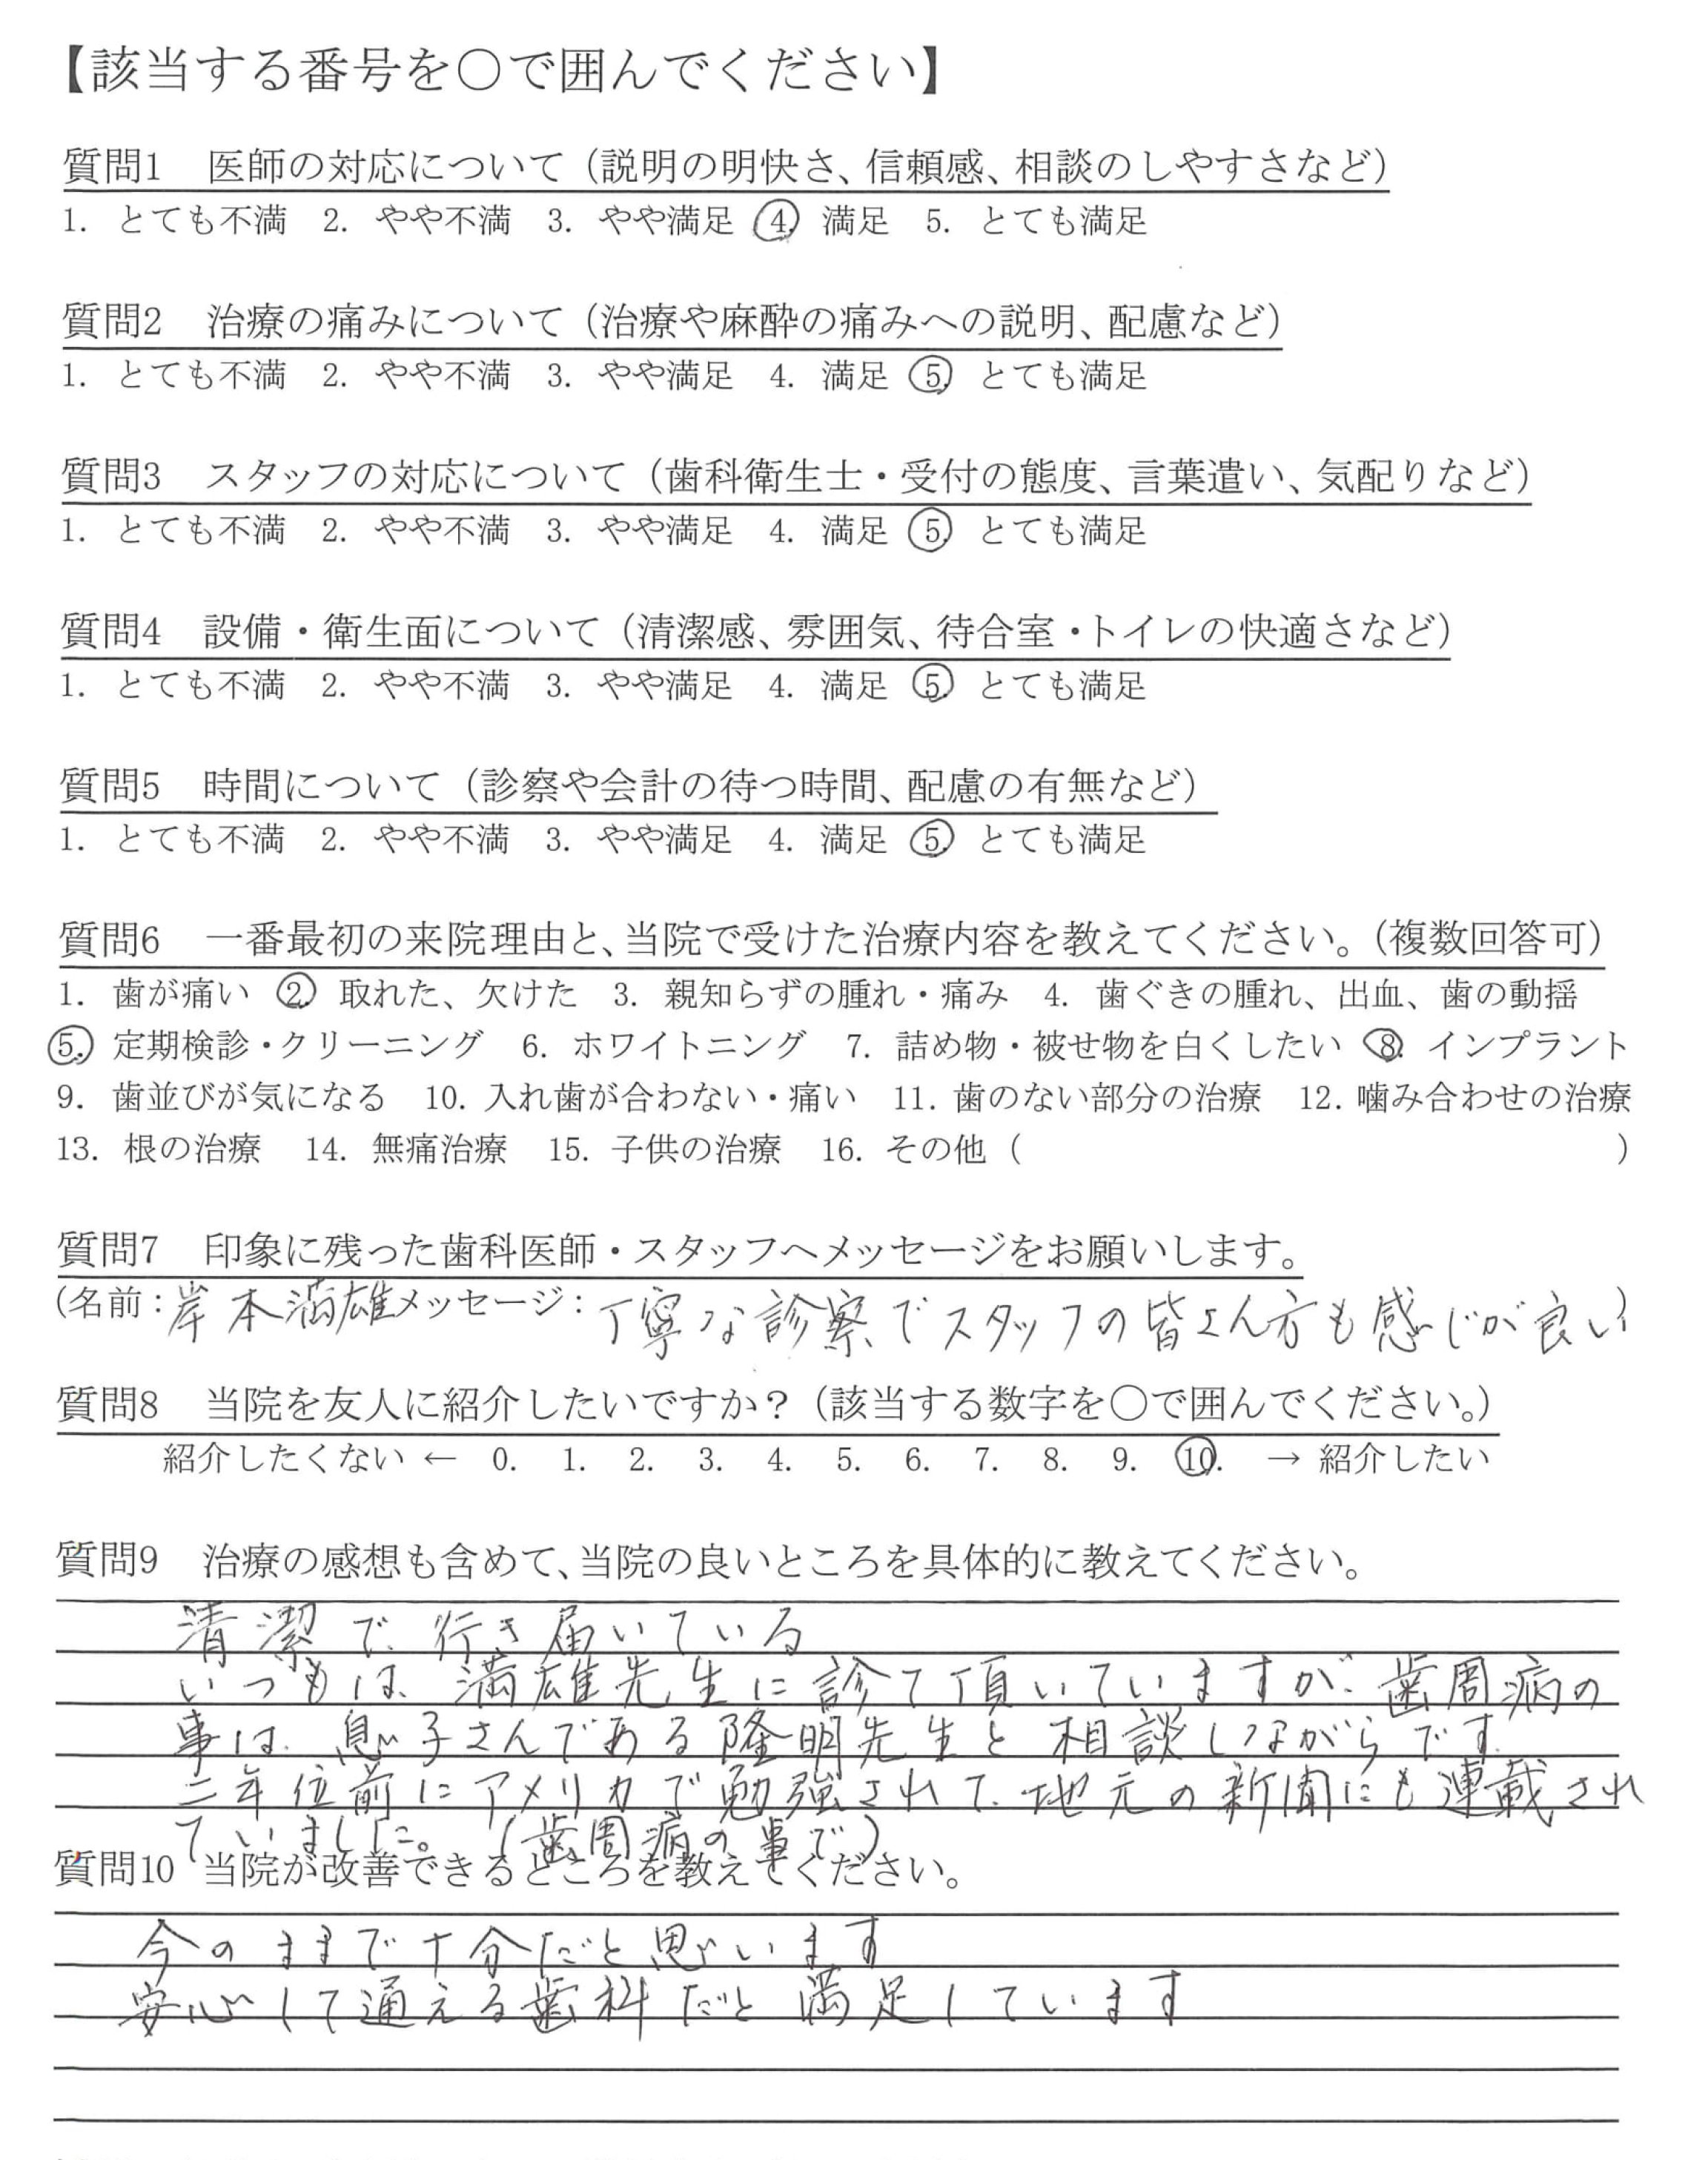 【該当する番号を〇で囲んでください】
質問1　医師の対応について（説明の明快さ、信頼感、相談のしやすさなど）
1. とても不満　2. やや不満　3. やや満足　4. 満足　5. とても満足
質問2　治療の痛みについて（治療や麻酔の痛みへの説明、配慮など）
1. とても不満　2. やや不満　3. やや満足　4. 満足　5. とても満足
質問3　スタッフの対応について（歯科衛生士・受付の態度、言葉遣い、気配りなど）
1. とても不満　2. やや不満　3. やや満足　4. 満足　5. とても満足
質問4　設備・衛生面について（清潔感、雰囲気、待合室・トイレの快適さなど）
1. とても不満　2. やや不満　3. やや満足　4. 満足　5. とても満足
質問5　時間について（診察や会計の待つ時間、配慮の有無など）
1. とても不満　2. やや不満　3. やや満足　4. 満足　5. とても満足
質問6　一番最初の来院理由と、当院で受けた治療内容を教えてください。（複数回答可）
1. 歯が痛い　2. 取れた、欠けた　3. 親知らずの腫れ・痛み　4. 歯ぐきの腫れ、出血、歯の動揺
5. 定期検診・クリーニング　6. ホワイトニング　7. 詰め物・被せ物を白くしたい　8. インプラント
9. 歯並びが気になる　10. 入れ歯が合わない・痛い　11. 歯のない部分の治療　12. 噛み合わせの治療
13. 根の治療　14. 無痛治療　15. 子供の治療　16. その他（　　　）
質問7　印象に残った歯科医師・スタッフへメッセージをお願いします。
（名前：岸本満雄メッセージ：丁寧な診察でスタッフの皆さん方も感じが良い）
質問8　当院を友人に紹介したいですか？（該当する数字を〇で囲んでください。）
紹介したくない ← 0. 1. 2. 3. 4. 5. 6. 7. 8. 9. 10. → 紹介したい
質問9　治療の感想も含めて、当院の良いところを具体的に教えてください。
清潔で行き届いている
いつもは、満雄先生に診て頂いていますが、歯周病の
事は、息子さんである隆明先生と相談しながらです。
二年位前にアメリカで勉強されて、地元の新聞にも連載され
ていました。（歯周病の事で）
質問10　当院が改善できるところを教えてください。
今のままで十分だと思います
安心して通える歯科だと満足しています